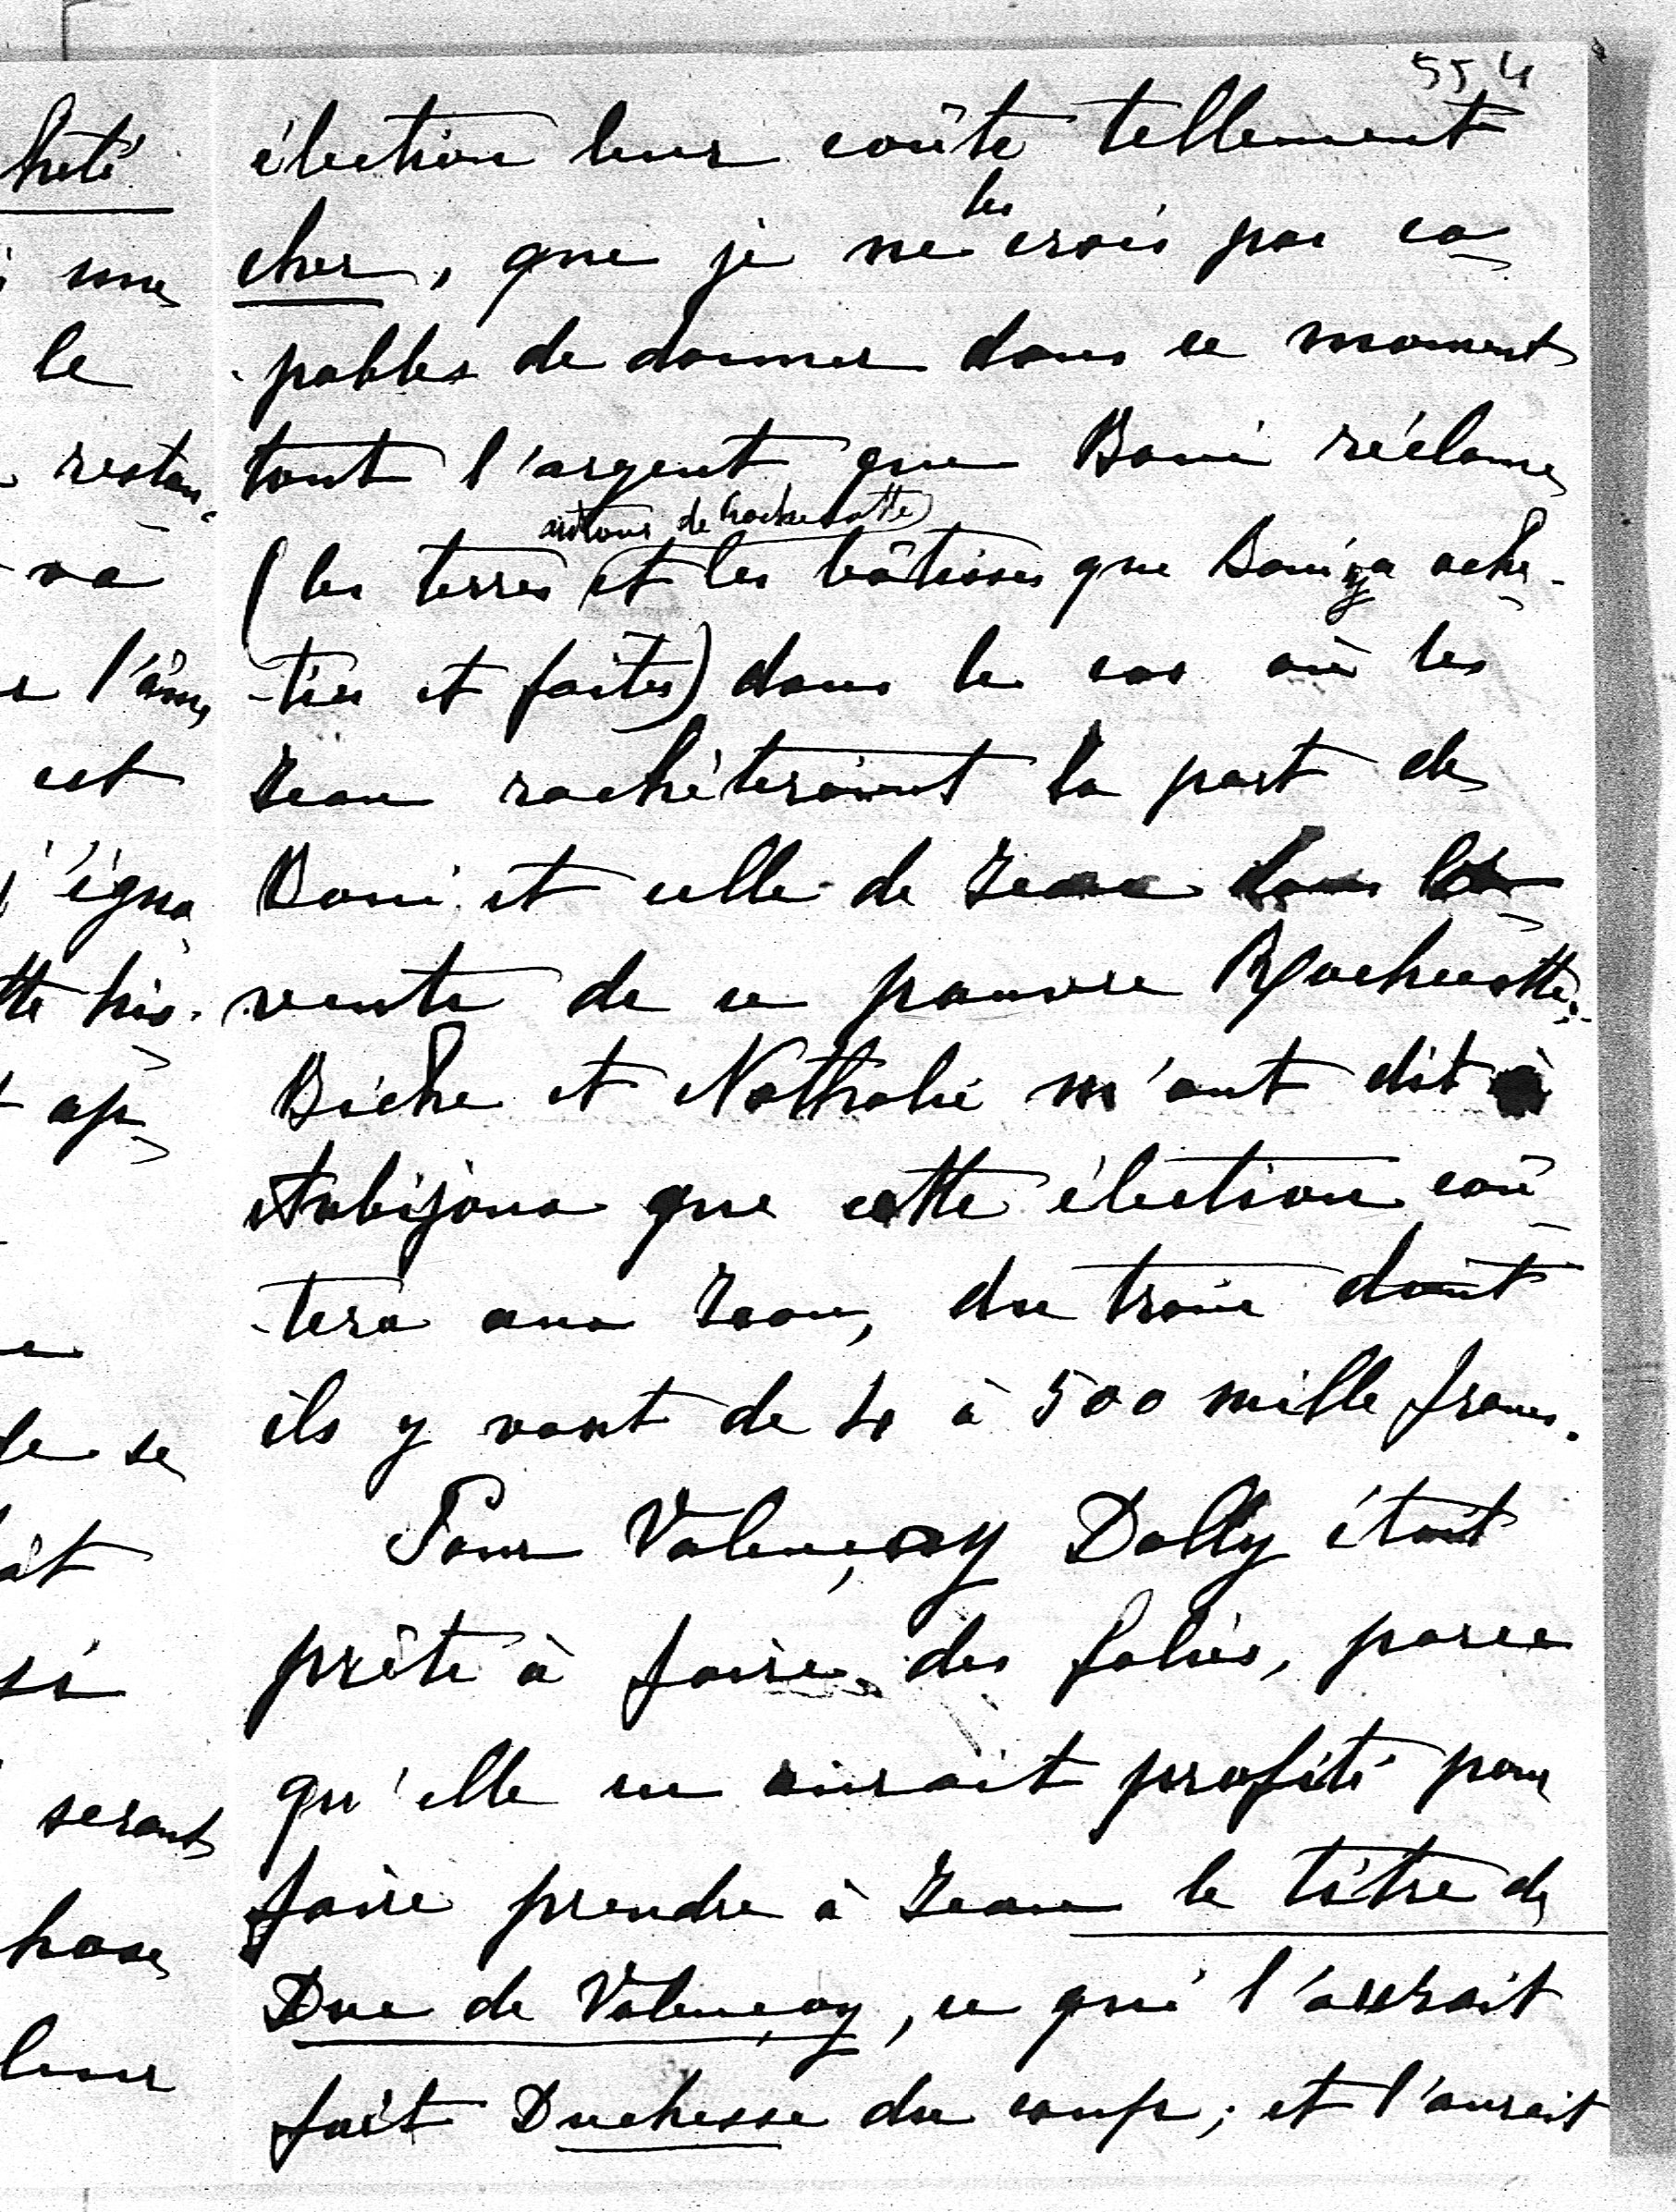 554
élection leur coûte tellement
cher, que je ne les crois pas ca-
-pables de donner dans ce moment
tout l'argent que Boni réclame
(les terres autour de Rochecotte) et les bâtisses que Boni y a ache-
-tées et faites) dans le cas où les
Jean rachèteraient la part de
Boni et celle de Jean dans la
vente de ce pauvre Rochecotte.
Biche et Nathalie m'ont dit à
Aubijoux que cette élection coû-
-tera aux Jean, du train dont
ils y vont de 4 à 500 mille francs.
Pour Valençay Dolly était
prête à faire des folies, parce
qu'elle en aurait profité pour
faire prendre à Jean le titre de
Duc de Valençay, ce qui l'aurait
fait Duchesse du coup; et l'aurait
heté
une
le
restau-
va
l'âme
est
his-
ap-
de se
si
seront
hose
leur